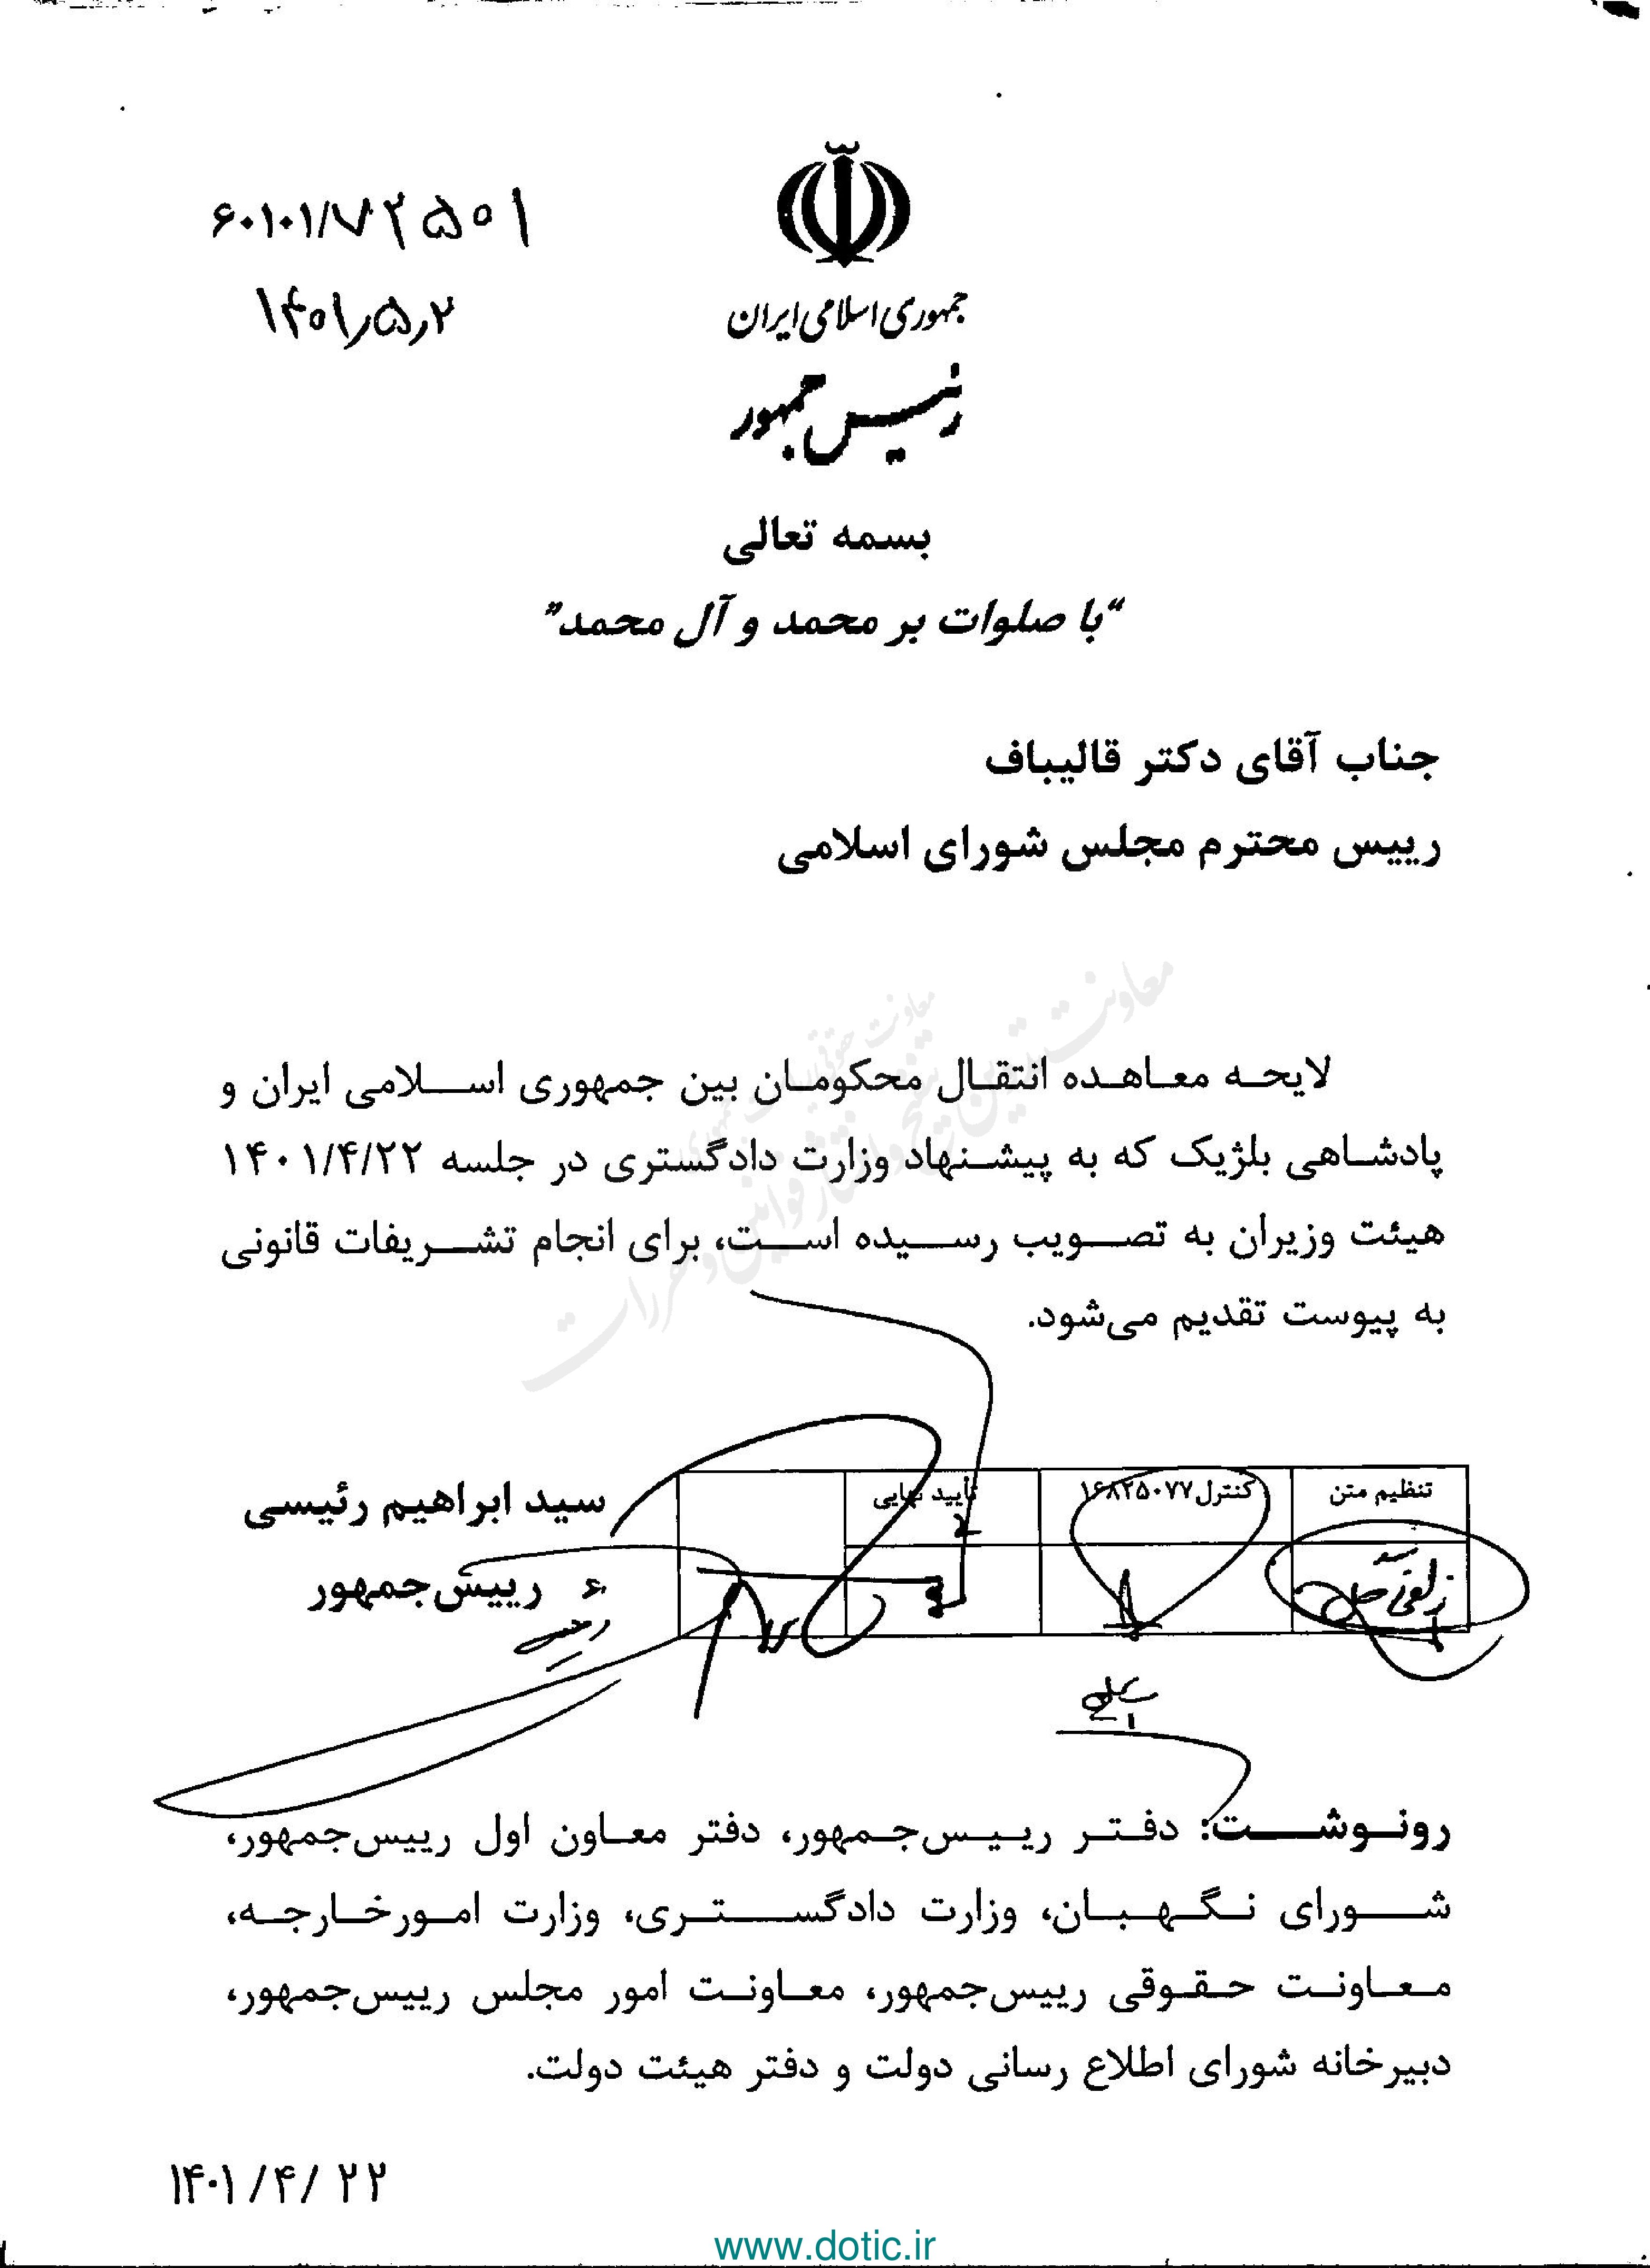 ۶۰۱۰۱/۷۲۵۰۱
۱۴۰۱٫۵٫۲
جمهوری اسلامی ایران
رئیس جمهور
بسمه تعالی
“با صلوات بر محمد و آل محمد”
جناب آقای دکتر قالیباف
رییس محترم مجلس شورای اسلامی
لایحه معاهده انتقال محکومان بین جمهوری اسلامی ایران و
پادشاهی بلژیک که به پیشنهاد وزارت دادگستری در جلسه ۱۴۰۱/۴/۲۲
هیئت وزیران به تصویب رسیده است، برای انجام تشریفات قانونی
به پیوست تقدیم می‌شود.
معاونت تدوین تنقیح و انتشار قوانین و مقررات
تنظیم متن
کنترل ۱۶۸۲۵۰۷۷
تأیید نهایی
سید ابراهیم رئیسی
رییس‌جمهور
رونوشت: دفتر رییس‌جمهور، دفتر معاون اول رییس‌جمهور،
شورای نگهبان، وزارت دادگستری، وزارت امورخارجه،
معاونت حقوقی رییس‌جمهور، معاونت امور مجلس رییس‌جمهور،
دبیرخانه شورای اطلاع رسانی دولت و دفتر هیئت دولت.
۱۴۰۱/۴/۲۲
www.dotic.ir